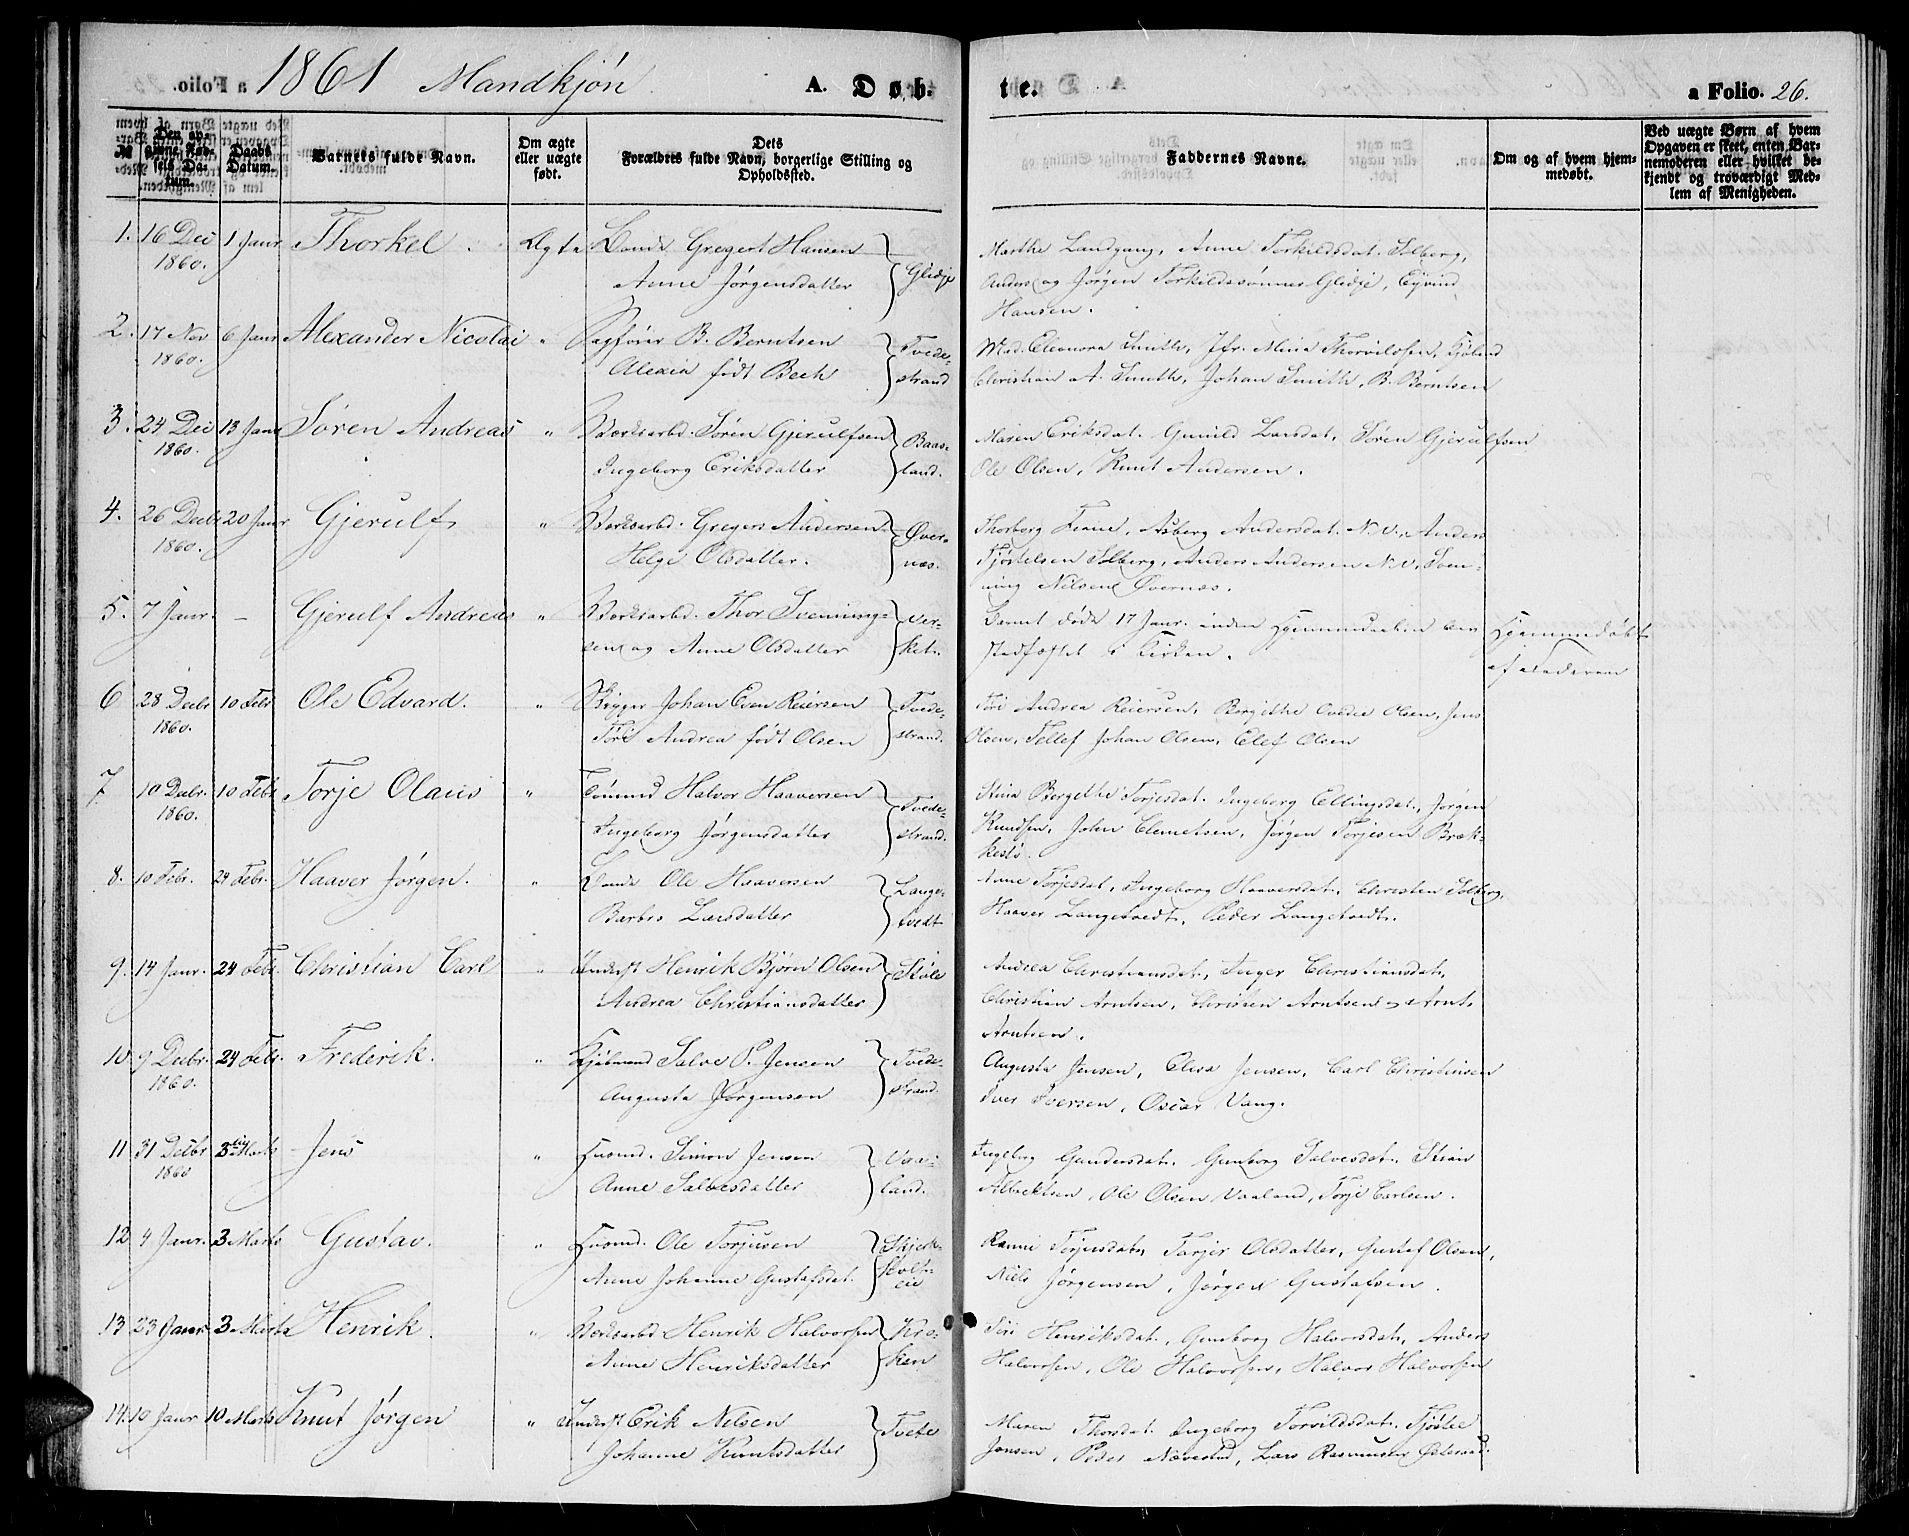 1861 Mandkjön A. Døb- te. a Folio. 26.
№
Den op-
givne Fød-
sels Da-
tum.
Daabs
Datum.
Barnets fulde Navn.
Om ægte
eller uægte
født.
Dets
Forældres fulde Navn, borgerlige Stilling og
Opholdssted.
Faddernes Navne.
Om og af hvem hjem-
medøbt.
Ved uægte Børn af hvem
Opgaven er skeet, enten Bar-
nemoderen eller hvilket be-
kjendt og troværdigt Med-
lem af Menigheden.
1. 16 Dec 1 Janr Thorkel Ægte Bonde Gregert Hansen
1860. Anne Jörgensdatter Glidje
Marthe Landgang, Anne Torkildsdat. Solberg,
Anders og Jörgen Torkildssønner Glidje, Eyvind
Hansen.
2. 17 Nov 6 Janr Alexander Nicolai " Sagfører B. Berntsen Tvede-
1860. Alexia født Bech strand
Mad. Eleonora Smith, Jfr. Mina Thorvildsen,
Christian A. Smith, Johan Smith, B. Berntsen
3. 24 Dec 13 Janr Sören Andreas " Værksarbd. Sören Gjerulfsen Baas-
1860. Ingeborg Eriksdatter land.
Maren Eriksdat. Gunild Larsdat, Sören Gjerulfsen
Ole Olsen, Knut Andersen.
4. 26 Decbr 20 Janr Gjerulf " Værksarbd. Gregers Andersen Øver-
1860. Helge Olsdatter. næs.
Thorborg Asberg Andersdat. N.V., Anders
Tjöstelsen Solberg, Anders Andersen N.V., Sven-
ning Nilsen Øvernæs.
5. 7 Janr. - Gjerulf Andreas " Værksarbd. Thor Svenning- Ver-
sen og Anne Olsdatter ket.
Barnet døde 17 Janr. inden Hjemmedaaben var
stadfæstet i Kirken.
Hjemmedøbt
af Faderen
6 28 Decbr 10 Febr Ole Edvard. " Skipper Johan Even Reiersen Tvede-
1860. Töri Andrea født Olsen strand.
Töri Andrea Reiersen, Bergithe Ovedie Olsen, Jens
Olsen, Tellef Johan Olsen, Elef Olsen
7 10 Decbr. 10 Febr Torje Olaus " Tömmd Halvor Haaversen Tvede-
1860. Ingeborg Jörgensdatter strand.
Stina Bergethe Torjesdat. Ingeborg Ellingsdat, Jörgen
Knudsen, John Clemetsen, Jörgen Torjesen Bræk-
kestö.
8. 10 Febr. 24 Febr. Haaver Jörgen. " Bonde Ole Haaversen Lange-
Barbro Larsdatter tvedt
Anne Torjesdat, Ingeborg Haaversdat, Christen Solberg,
Haaver Langetvedt, Peder Langetvedt.
9. 14 Janr. 24 Febr Christian Carl " Inderst Henrik Björn Olsen Sköle
Andrea Christiansdatter
Andrea Christiansdat, Inger Christiansdat,
Christian Arntsen, Christen Arntsen og Arnt
Arntsen.
10. 9 Decbr. 24 Febr. Frederik. " Kjöbmand Salve P. Jensen Tvede-
1860. Augusta Jörgensen strand.
Augusta Jensen, Elisa Jensen, Carl Christensen
Iver Iversen, Oscar Vang.
11 31 Decbr 3 Marts Jens " Huusmd. Simon Jensen Vaa-
1860 Anne Salvesdatter land.
Ingeborg Gundersdat. Gunborg Salvesdat. Stian
Albretsen, Ole Olsen Vaaland, Torje Carlsen.
12 4 Janr. 3 Marts Gustav. " Huusmd. Ole Torjusen Skjerk-
Anne Johanne Gustafsdat. holt-
eie
Ranni Torjusdat, Tarjer Olsdatter, Gustaf Olsen,
Niels Jörgensen, Jörgen Gustafsen.
13 23 Janr 3 Marts Henrik. " Værksarbd Henrik Halvorsen Kro-
Anne Henriksdatter ken
Töri Henriksdat, Gunborg Halvorsdat, Anders
Halvorsen, Ole Halvorsen, Halvor Halvorsen
14. 10 Janr 10 Marts Knut Jörgen " Inderst Erik Nilsen Tvete
Johanne Knutsdatter
Maren Thorsdat. Ingeborg Torvildsdat. Tjöstel
Jensen, Peder Nævestad, Lars Rasmusen